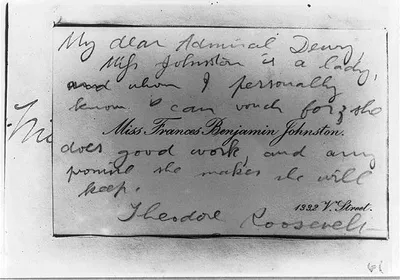 My dear Admiral Dewey
Miss Johnston is a lady,
and whom I personally
know & can vouch for; she
Miss Frances Benjamin Johnston.
does good work, and any
promise she makes she will
keep.
1332 V. Street.
Theodore Roosevelt